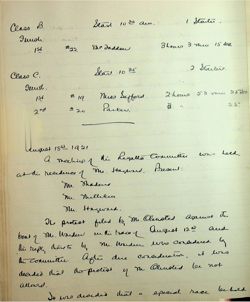 Class B. Start 10 15 am. 1 Starter.
Finish
1st #22 McFadden 3 hours 3 min 15 sec
Class C. Start 10 25 2 Starters
Finish
1st #19 Miss Safford 2 hours 53 min 35 sec
2nd #20 Parker
August 15th 1921
A meeting of the Regatta Committee was held
at the residence of Mr. Hayward. Present
Mr.
Mr. Milliken
Mr. Hayward.
The protest filed by Mr. Olmsted against the
boat of Mr. Warden in the race of August 13th and
the reply thereto by Mr. Warden was considered by
the Committee. After due consideration, it was
decided that the protest of Mr. Olmsted be not
allowed.
It was decided that a special race be held